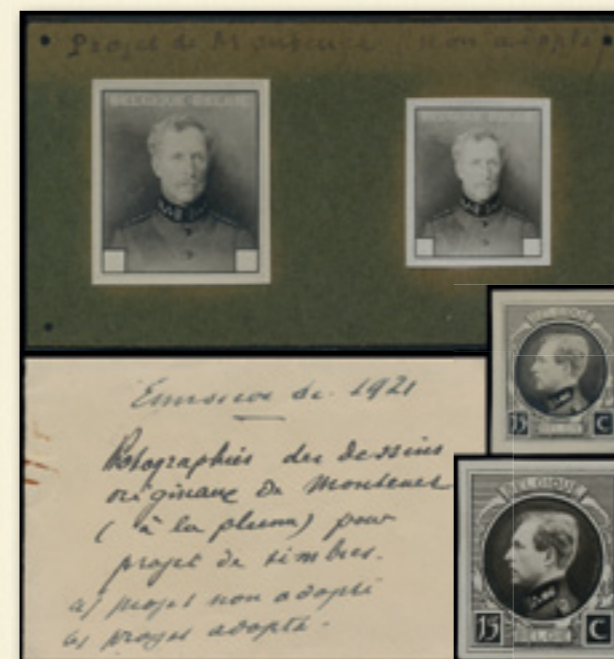 Projet de Montenez non adopté
BELGIQUE BELGIË
Emission de 1921
Photographies des dessins
originaux de Montenez
( à la plume ) pour
projet de timbres.
a) projet non adopté
b) projet adopté.
BELGIQUE
15 C
BELGIË
BELGIQUE
15 C
BELGIË